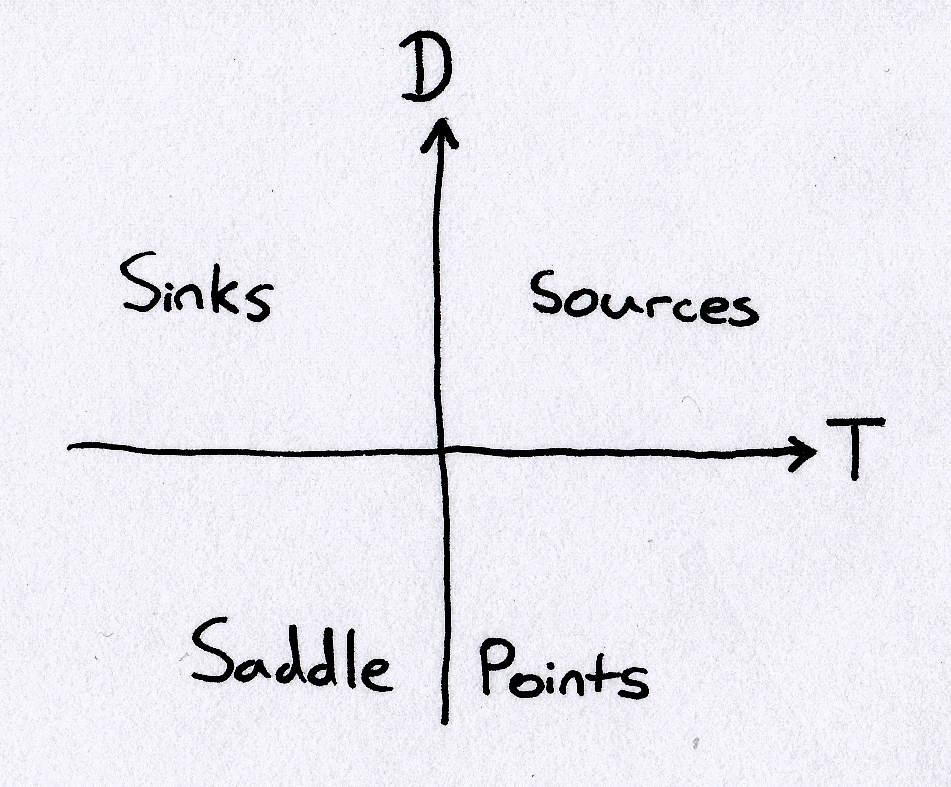 D
Sinks
Sources
T
Saddle Points